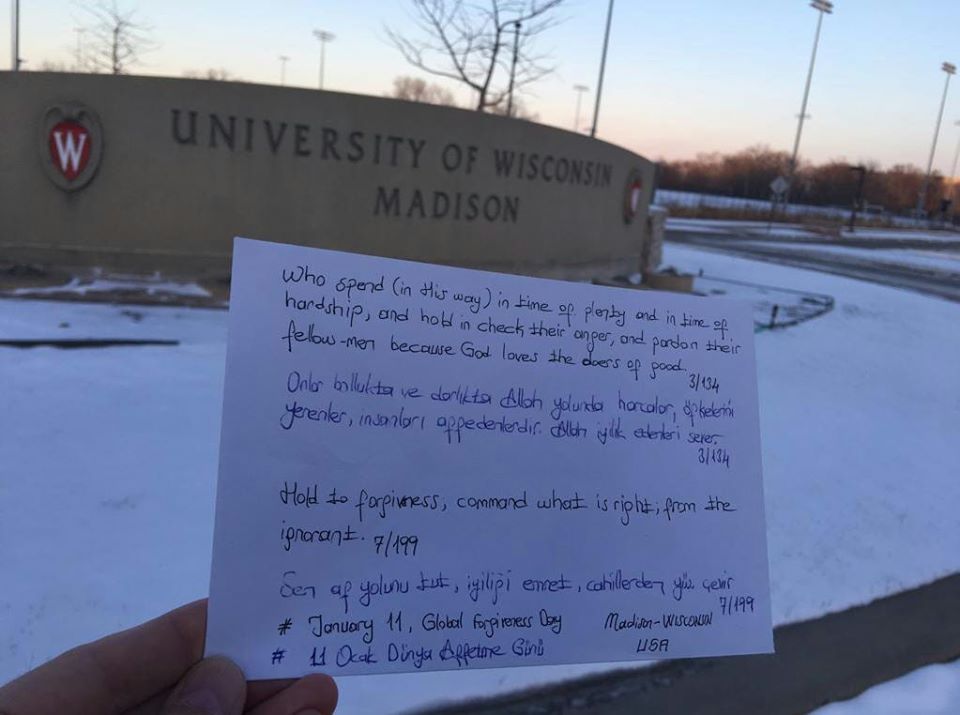 W
UNIVERSITY OF WISCONSIN
MADISON
Who spend (in this way) in time of plenty and in time of
hardship, and hold in check their anger, and pardon their
fellow-men because God loves the doers of good.
3/134
Onlar bollukta ve darlıkta Allah yolunda harcalar, öfkelerini
yerenler, insanları affedenlerdir. Allah iyilik edenleri sever.
3/134
Hold to forgivness, command what is right; from the
ignorant. 7/199
Sen af yolunu tut, iyiliği emret, cahillerden yüz çevir
7/199
# January 11, Global Forgiveness Day
Madison-WISCONSIN
# 11 Ocak Dünya Affetme Günü
USA